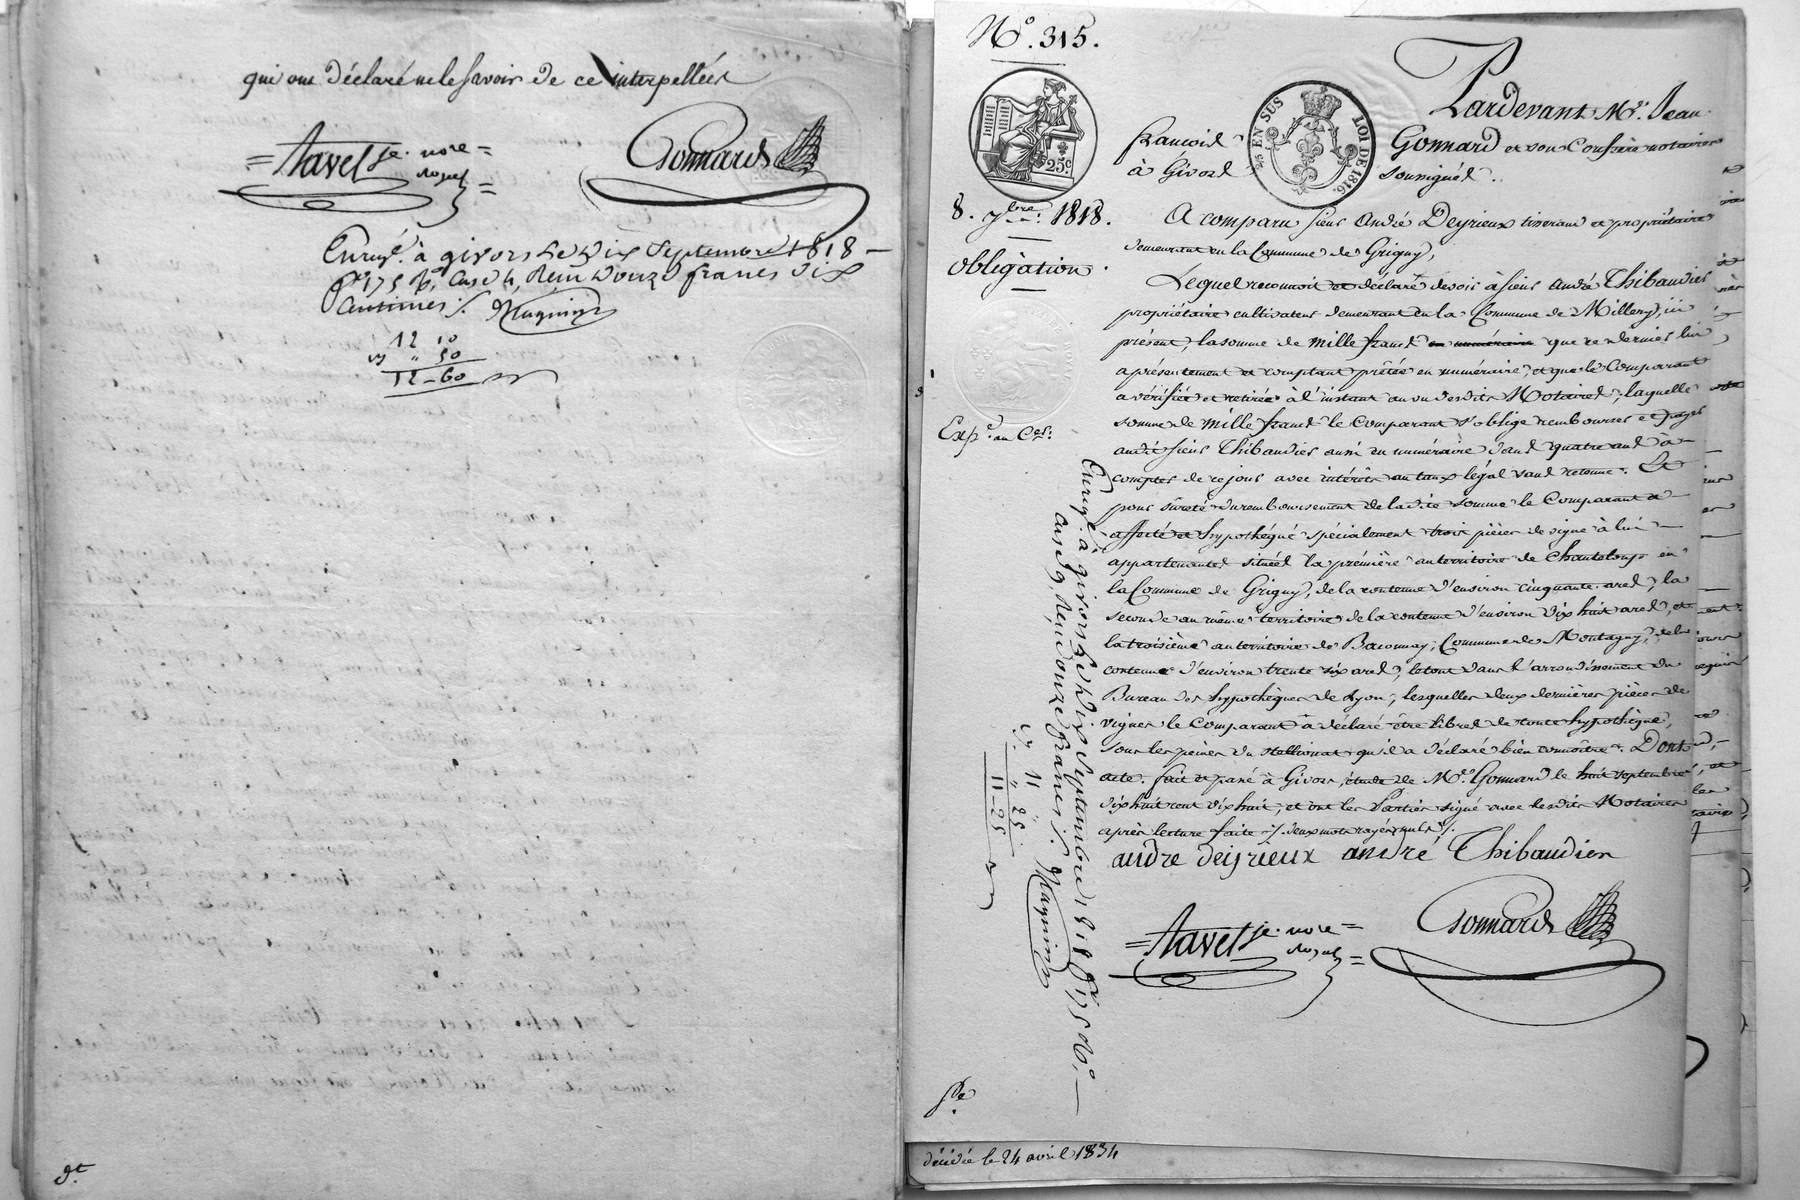 qui ont déclaré ne le savoir de ce interpellées
= Tavel je. nore =
royal =
Gonnard
Enregé. à givors le dix Septembre 1818 —
fo. 175 Ro. Case 4, Reçu douze francs dix
Centimes ./.
12 10
" 50
12-60
No. 315.
Pardevant Me. Jean
françois Gonnard et son Confrère notaires
à Givors soussignés.
25 EN SUS
LOI DE 1816.
25c
8. 7bre. 1818.
Obligation.
Expé. au Cer.
A comparu sieur André Deyrieux tisserand et propriétaire
demeurant en la Commune de Grigny,
Lequel reconnoit et déclare devoir à sieur André Thibaudier
propriétaire cultivateur demeurant en la Commune de Millery, ici
présent, la somme de mille francs en numéraire que ce dernier lui
a présentement et comptant prêtée en numéraire, et que le Comparant
a vérifiée et retirée à l'instant au vu desdits Notaires; laquelle
somme de mille francs le Comparant s'oblige rembourser et payer
audit sieur Thibaudier aussi en numéraire dans quatre ans à
compter de ce jour avec intérêts au taux légal sans retenue. Et
pour sûreté du remboursement de ladite somme le Comparant a
affecté et hypothéqué spécialement trois pièces de vigne à lui
appartenantes situées la première au territoire de Chanteloup en
la Commune de Grigny, de la contenue d'environ cinquante ares, la
seconde au même territoire de la contenue d'environ dix huit ares, et
la troisième au territoire de Baconnay, Commune de Montagny, de la
contenue d'environ trente six ares, le tout dans l'arrondissement du
Bureau des hypothèques de Lyon; lesquelles deux dernières pièces de
vignes le Comparant a déclaré être libres de toute hypothèque,
sous les peines du stellionat qu'il a déclaré bien connoître. Dont
acte. fait et passé à Givors, étude de Me. Gonnard le huit septembre
dix huit cent dix huit, et ont les Parties signé avec lesdits Notaires
après lecture faite ./. deux mots rayés nuls ./.
andre deyrieux andré Thibaudier
= Tavel je. nore =
royal =
Gonnard
Enregé. à givors le dix Septembre 1818 fo. 175 Ro.
Case 9, Reçu onze francs ./.
11 "
" 25
11-25
décédé le 24 avril 1834